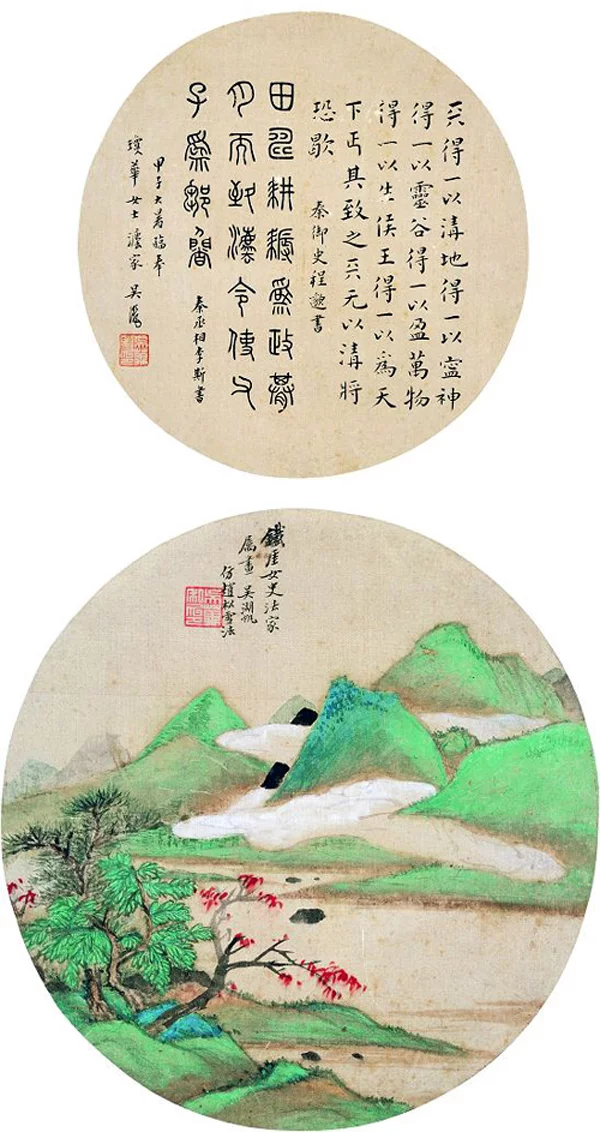 天得一以清地得一以寍神
得一以靈谷得一以盈萬物
得一以生侯王得一以爲天
下正其致之天元以清將
恐歇
秦御史程邈書
田疇耕耨爲政朞
月而致灋令傳
子爲
秦丞相李斯書
甲子大暑臨奉
瓊華女士灋家 吳
鐵厓女史法家
屬畫 吳湖帆
仿趙松雪法